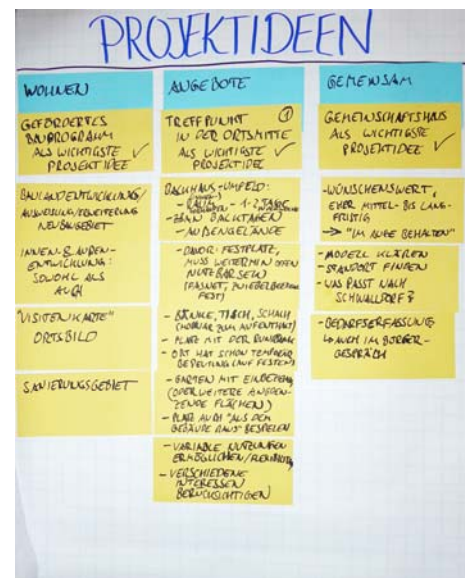 PROJEKTIDEEN
WOHNEN
GEFÖRDERTES
BAUPROGRAMM
ALS WICHTIGSTE
PROJEKTIDEE ✓
BAULANDENTWICKLUNG/
AUSWEISUNG/ERWEITERUNG
NEUBAUGEBIET
INNEN- & AUßEN-
ENTWICKLUNG:
SOWOHL ALS
AUCH
"VISITENKARTE"
ORTSBILD
SANIERUNGSGEBIET
ANGEBOTE
TREFFPUNKT ①
IN DER ORTSMITTE
ALS WICHTIGSTE ✓
PROJEKTIDEE
BACKHAUS-UMFELD:
1-2 TAGE
BACKTAGEN
- AUßENGELÄNDE
- DAVOR: FESTPLATZ,
MUSS WEITERHIN OFFEN
NUTZBAR SEIN
(FASNET, ZWIEBELBEEREN-
FEST)
- BÄNKE, TISCH, SCHACH
(MOBILIAR ZUM AUFENTHALT)
- PLATZ MIT DER
- ORT HAT SCHON TEMPORÄR
BEDEUTUNG (AUF FESTEN)
- GARTEN MIT EINBEZIEHEN
(ODER WEITERE ANGREN-
ZENDE FLÄCHEN)
- PLATZ AUCH "AUS DEM
GEBÄUDE RAUS" BESPIELEN
- VARIABLE NUTZUNGEN
ERMÖGLICHEN/FLEXIBILITÄT
- VERSCHIEDENE
INTERESSEN
BERÜCKSICHTIGEN
GEMEINSAM
GEMEINSCHAFTSHAUS
ALS WICHTIGSTE
PROJEKTIDEE ✓
- WÜNSCHENSWERT,
EHER MITTEL- BIS LANG-
FRISTIG
→ "IM AUGE BEHALTEN"
- MODELL KLÄREN
- STANDORT FINDEN
- WAS PASST NACH
SCHWALLDORF?
- BEDARFSERFASSUNG
↳ AUCH IM BÜRGER-
GESPRÄCH